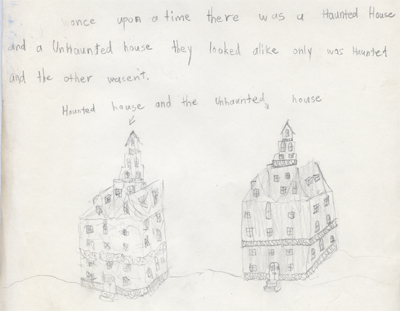 once upon a time there was a Haunted House
and a Unhaunted house they looked alike only was Haunted
and the other wasent.
Haunted house and the Unhaunted house